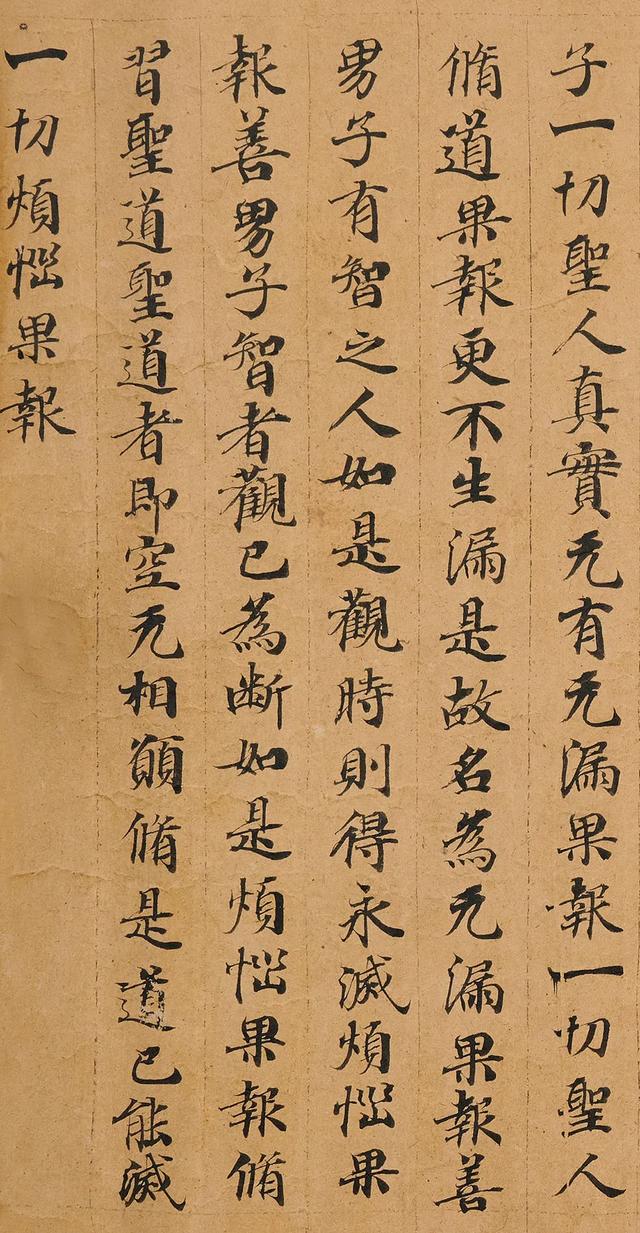 子一切聖人真實无有无漏果報一切聖人
脩道果報更不生漏是故名為无漏果報善
男子有智之人如是觀時則得永滅煩惱果
報善男子智者觀已為斷如是煩惱果報脩
習聖道聖道者即空无相願脩是道已能滅
一切煩惱果報